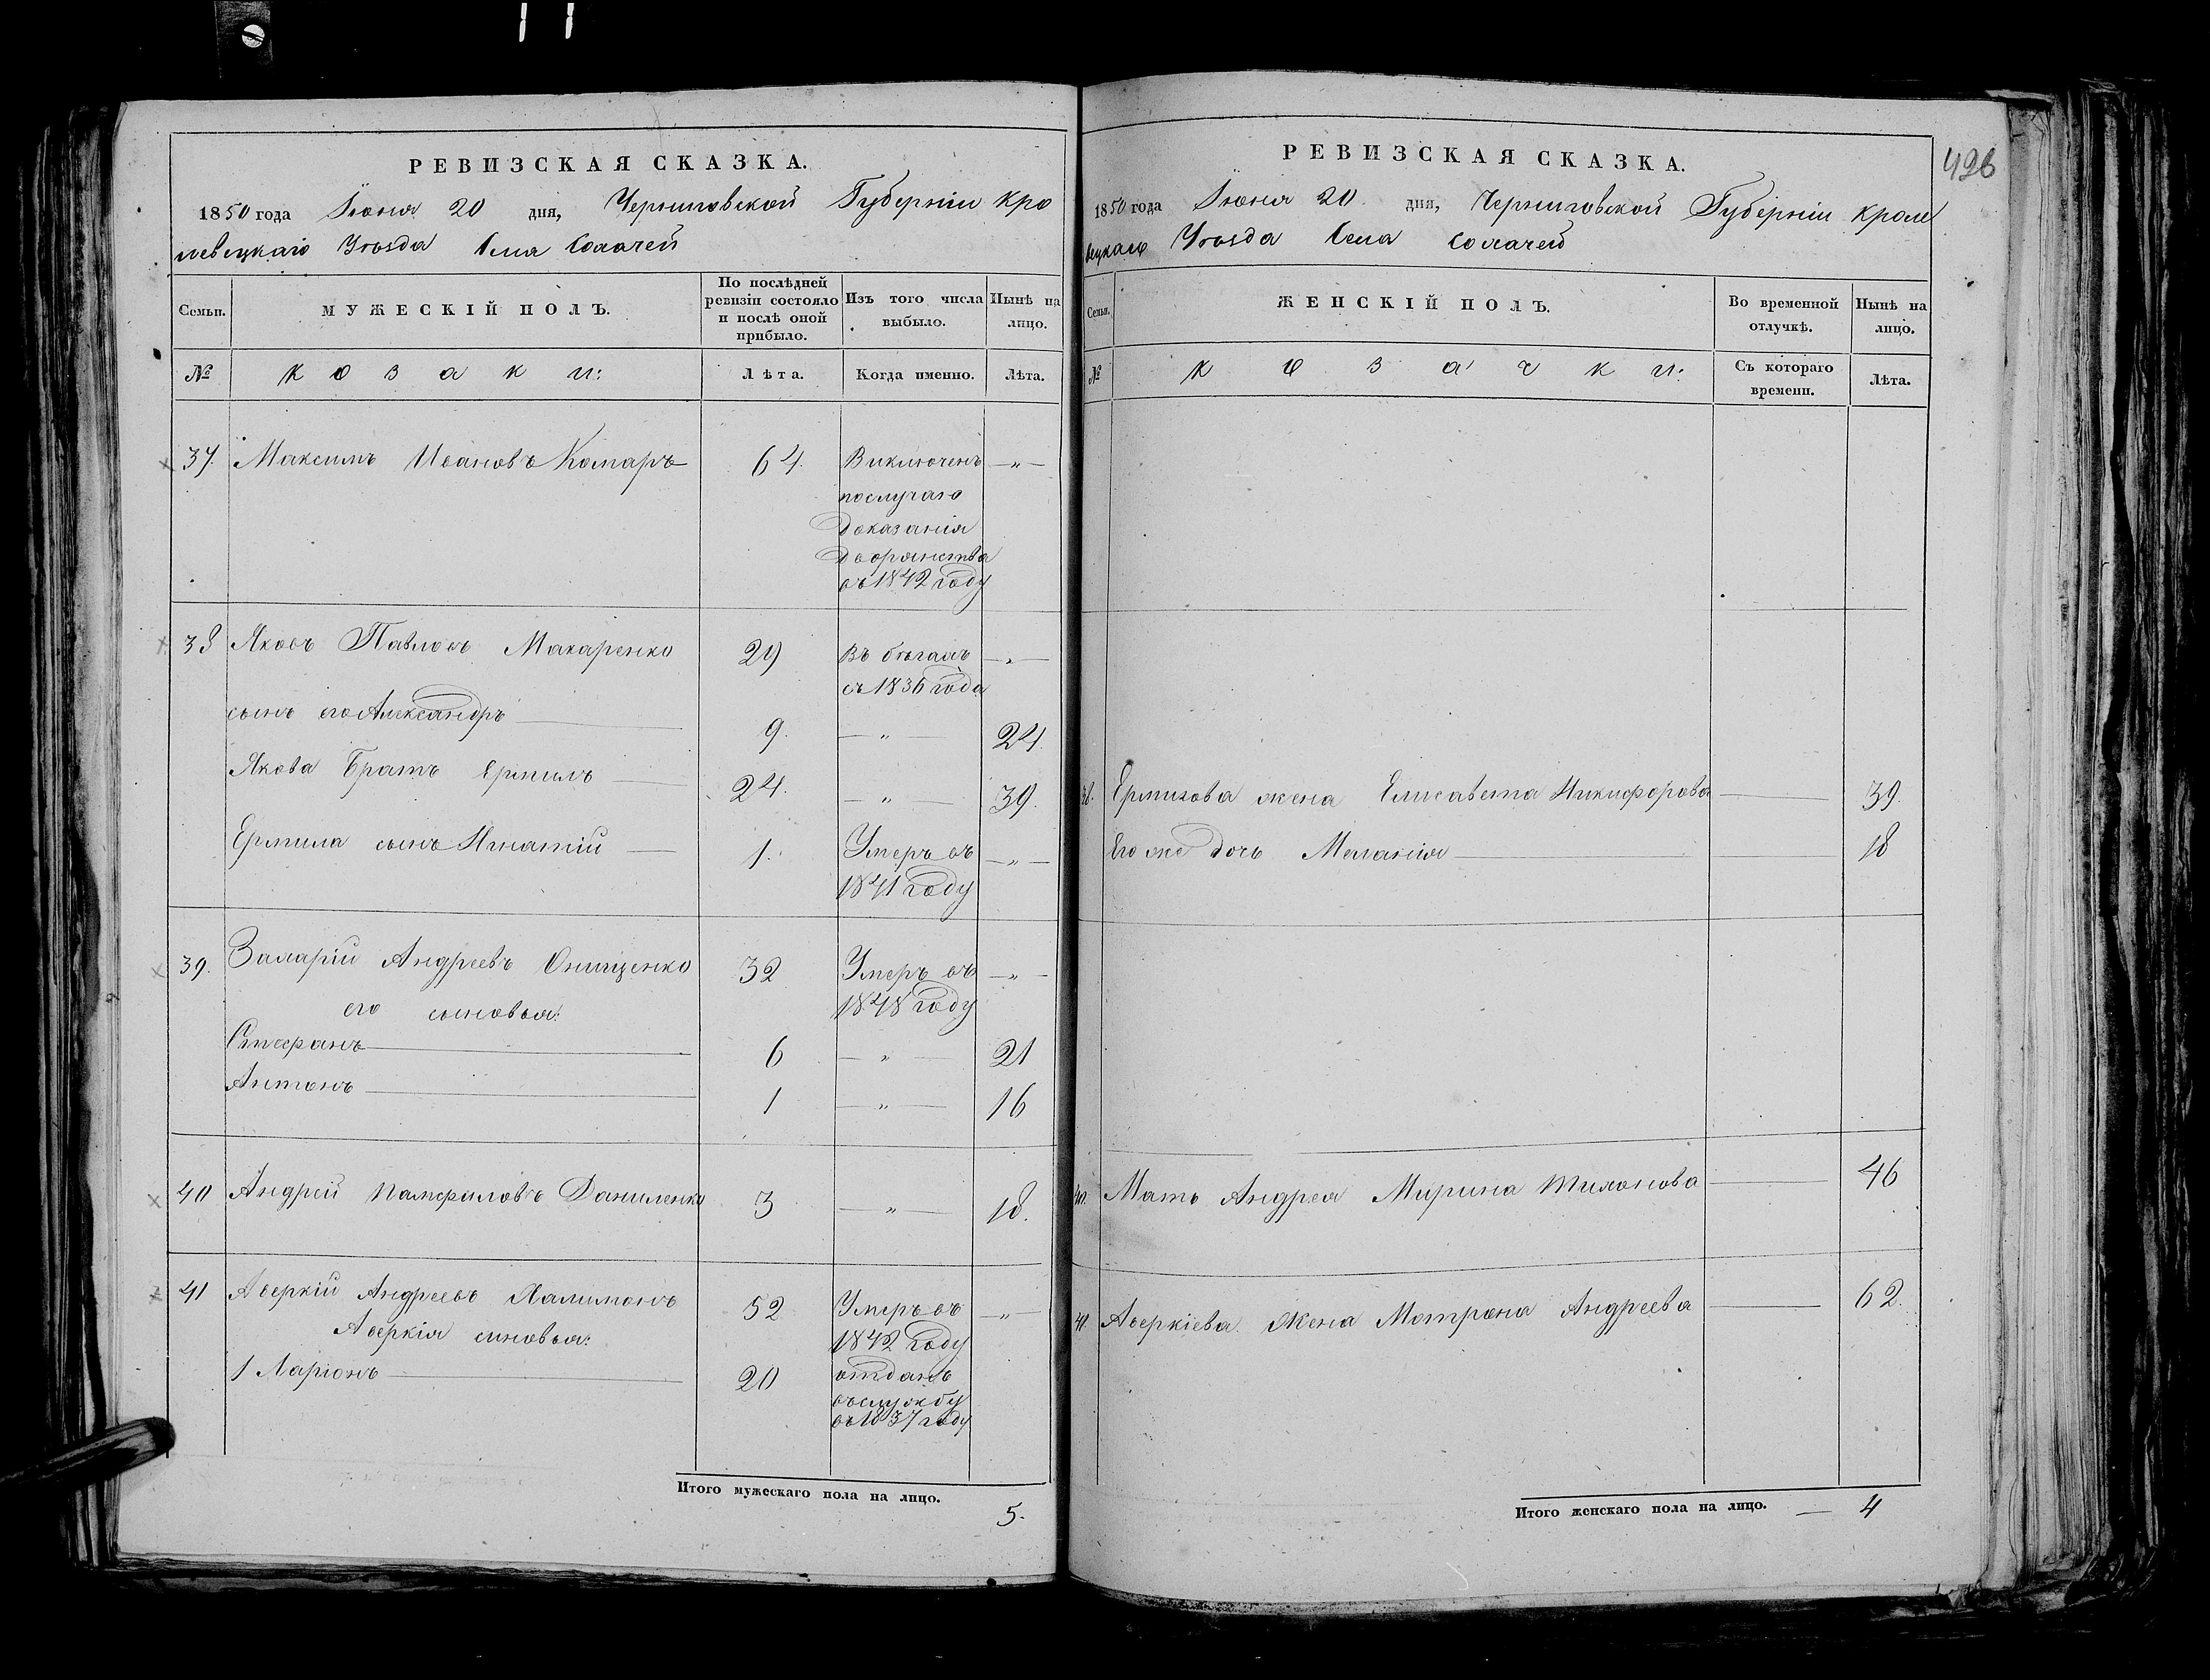 РЕВИЗСКАЯ СКАЗКА.
1850 года Іюня 20 дня, Черниговской Губерніи Кро
левецкаго Уѣзда Села Собичей
Семьи. МУЖЕСКІЙ ПОЛЪ. По послѣдней ревизіи состояло и послѣ оной прибыло. Изъ того числа выбыло. Нынѣ на лицо.
№ козаки: Лѣта. Когда именно. Лѣта.
37. Максимъ Ивановъ Комаръ 64. Виключенъ —„—
послучаю
доказанія
дворянства
въ 1842 году
38 Яковъ Павловъ Макаренко 29 Въ бѣгахъ —„—
съ 1836 года
сынъ его Александръ 9. —„— 24.
Якова Братъ Ермилъ 24. —„— 39.
Ермила сынъ Игнатій 1. Умеръ въ —„—
1841 году
39. Андреевъ Онищенко 32 Умеръ въ —„—
1848 году
его сыновья:
Стефанъ 6 —„— 21
Антонъ 1 —„— 16
40 Андрей Памфиловъ Даниленко 3 —„— 18.
41 Аверкій Андреевъ Халимонъ 52 Умеръ въ —„—
1842 году
Аверкія синовья:
1 Ларіонъ 20 отданъ
въ службу
въ 1837 году
Итого мужескаго пола на лицо. 5.
426
РЕВИЗСКАЯ СКАЗКА.
1850 года Іюня 20. дня, Черниговской Губерніи Кроле
вецкаго Уѣзда Села
Семьи. ЖЕНСКІЙ ПОЛЪ. Во временной отлучкѣ. Нынѣ на лицо.
№ козачки: Съ котораго времени. Лѣта.
38. Ермилова жена Елисавета Никифорова 39.
Его же дочь Меланія 18
40. Мать Андрея Марина Тихонова 46
41. Аверкіева Жена Мотрона Андреева 62.
Итого женскаго пола на лицо. — 4